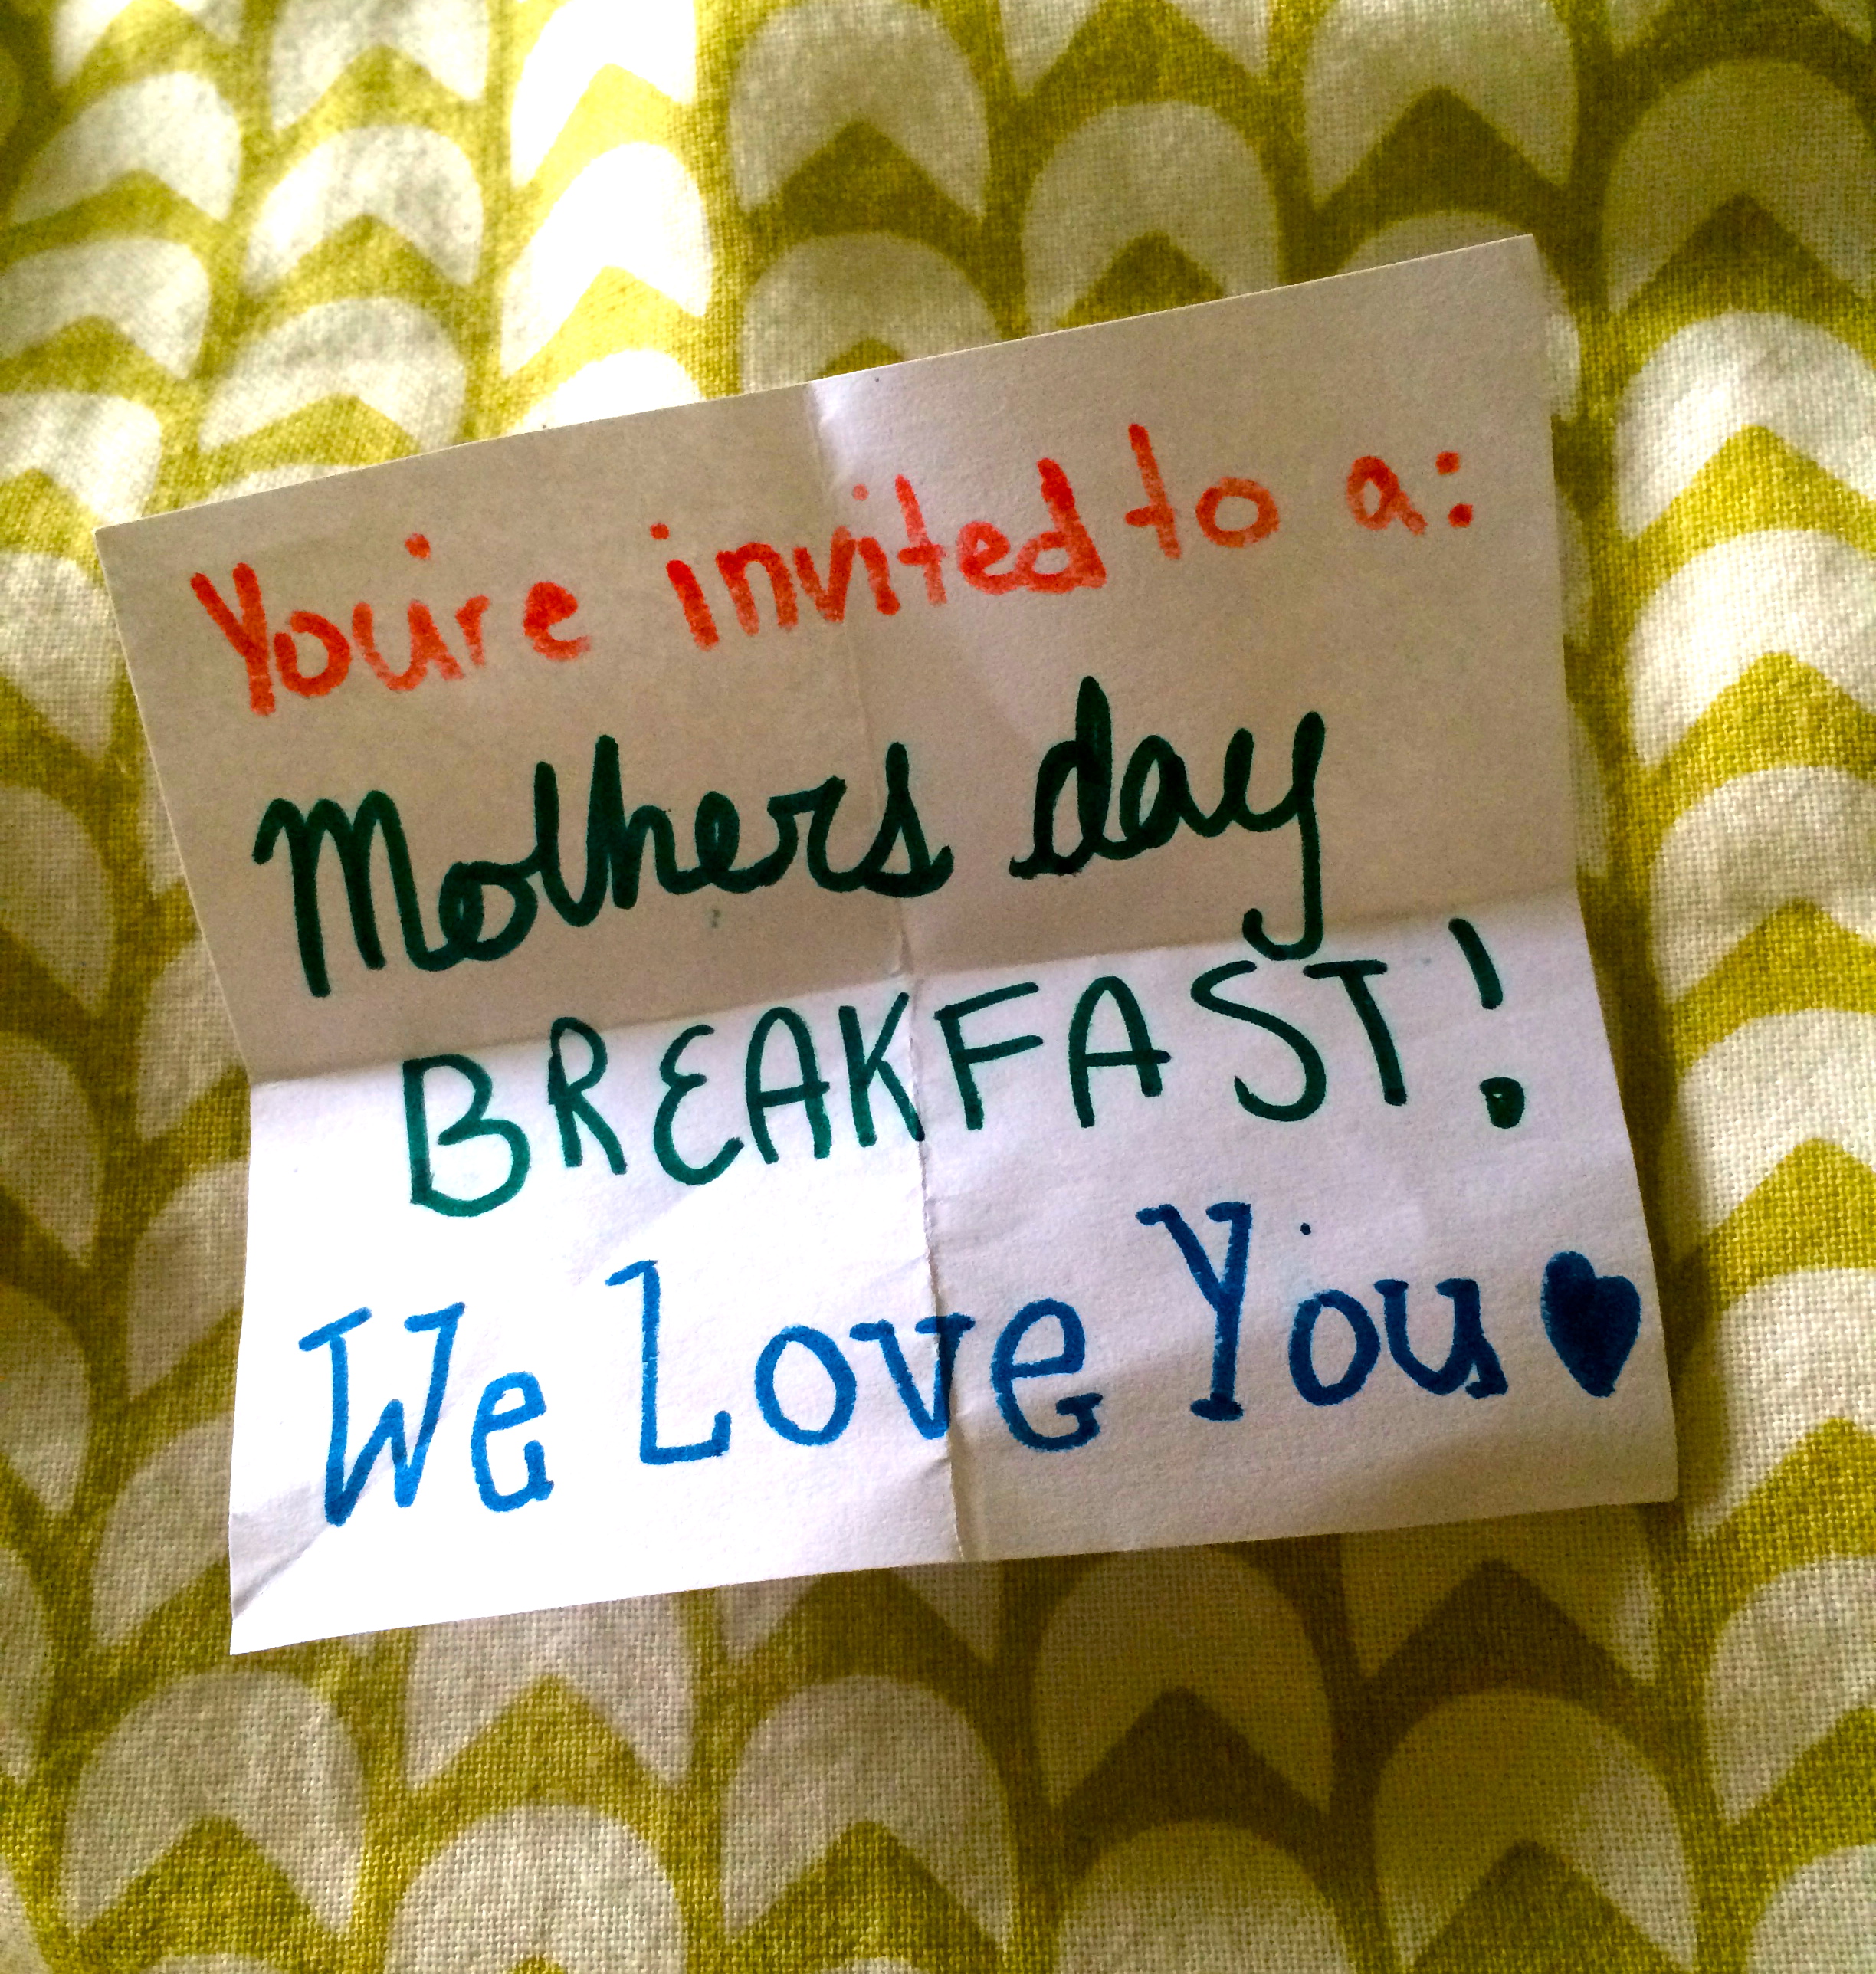 You're invited to a:
Mothers day
BREAKFAST!
We Love You ♥